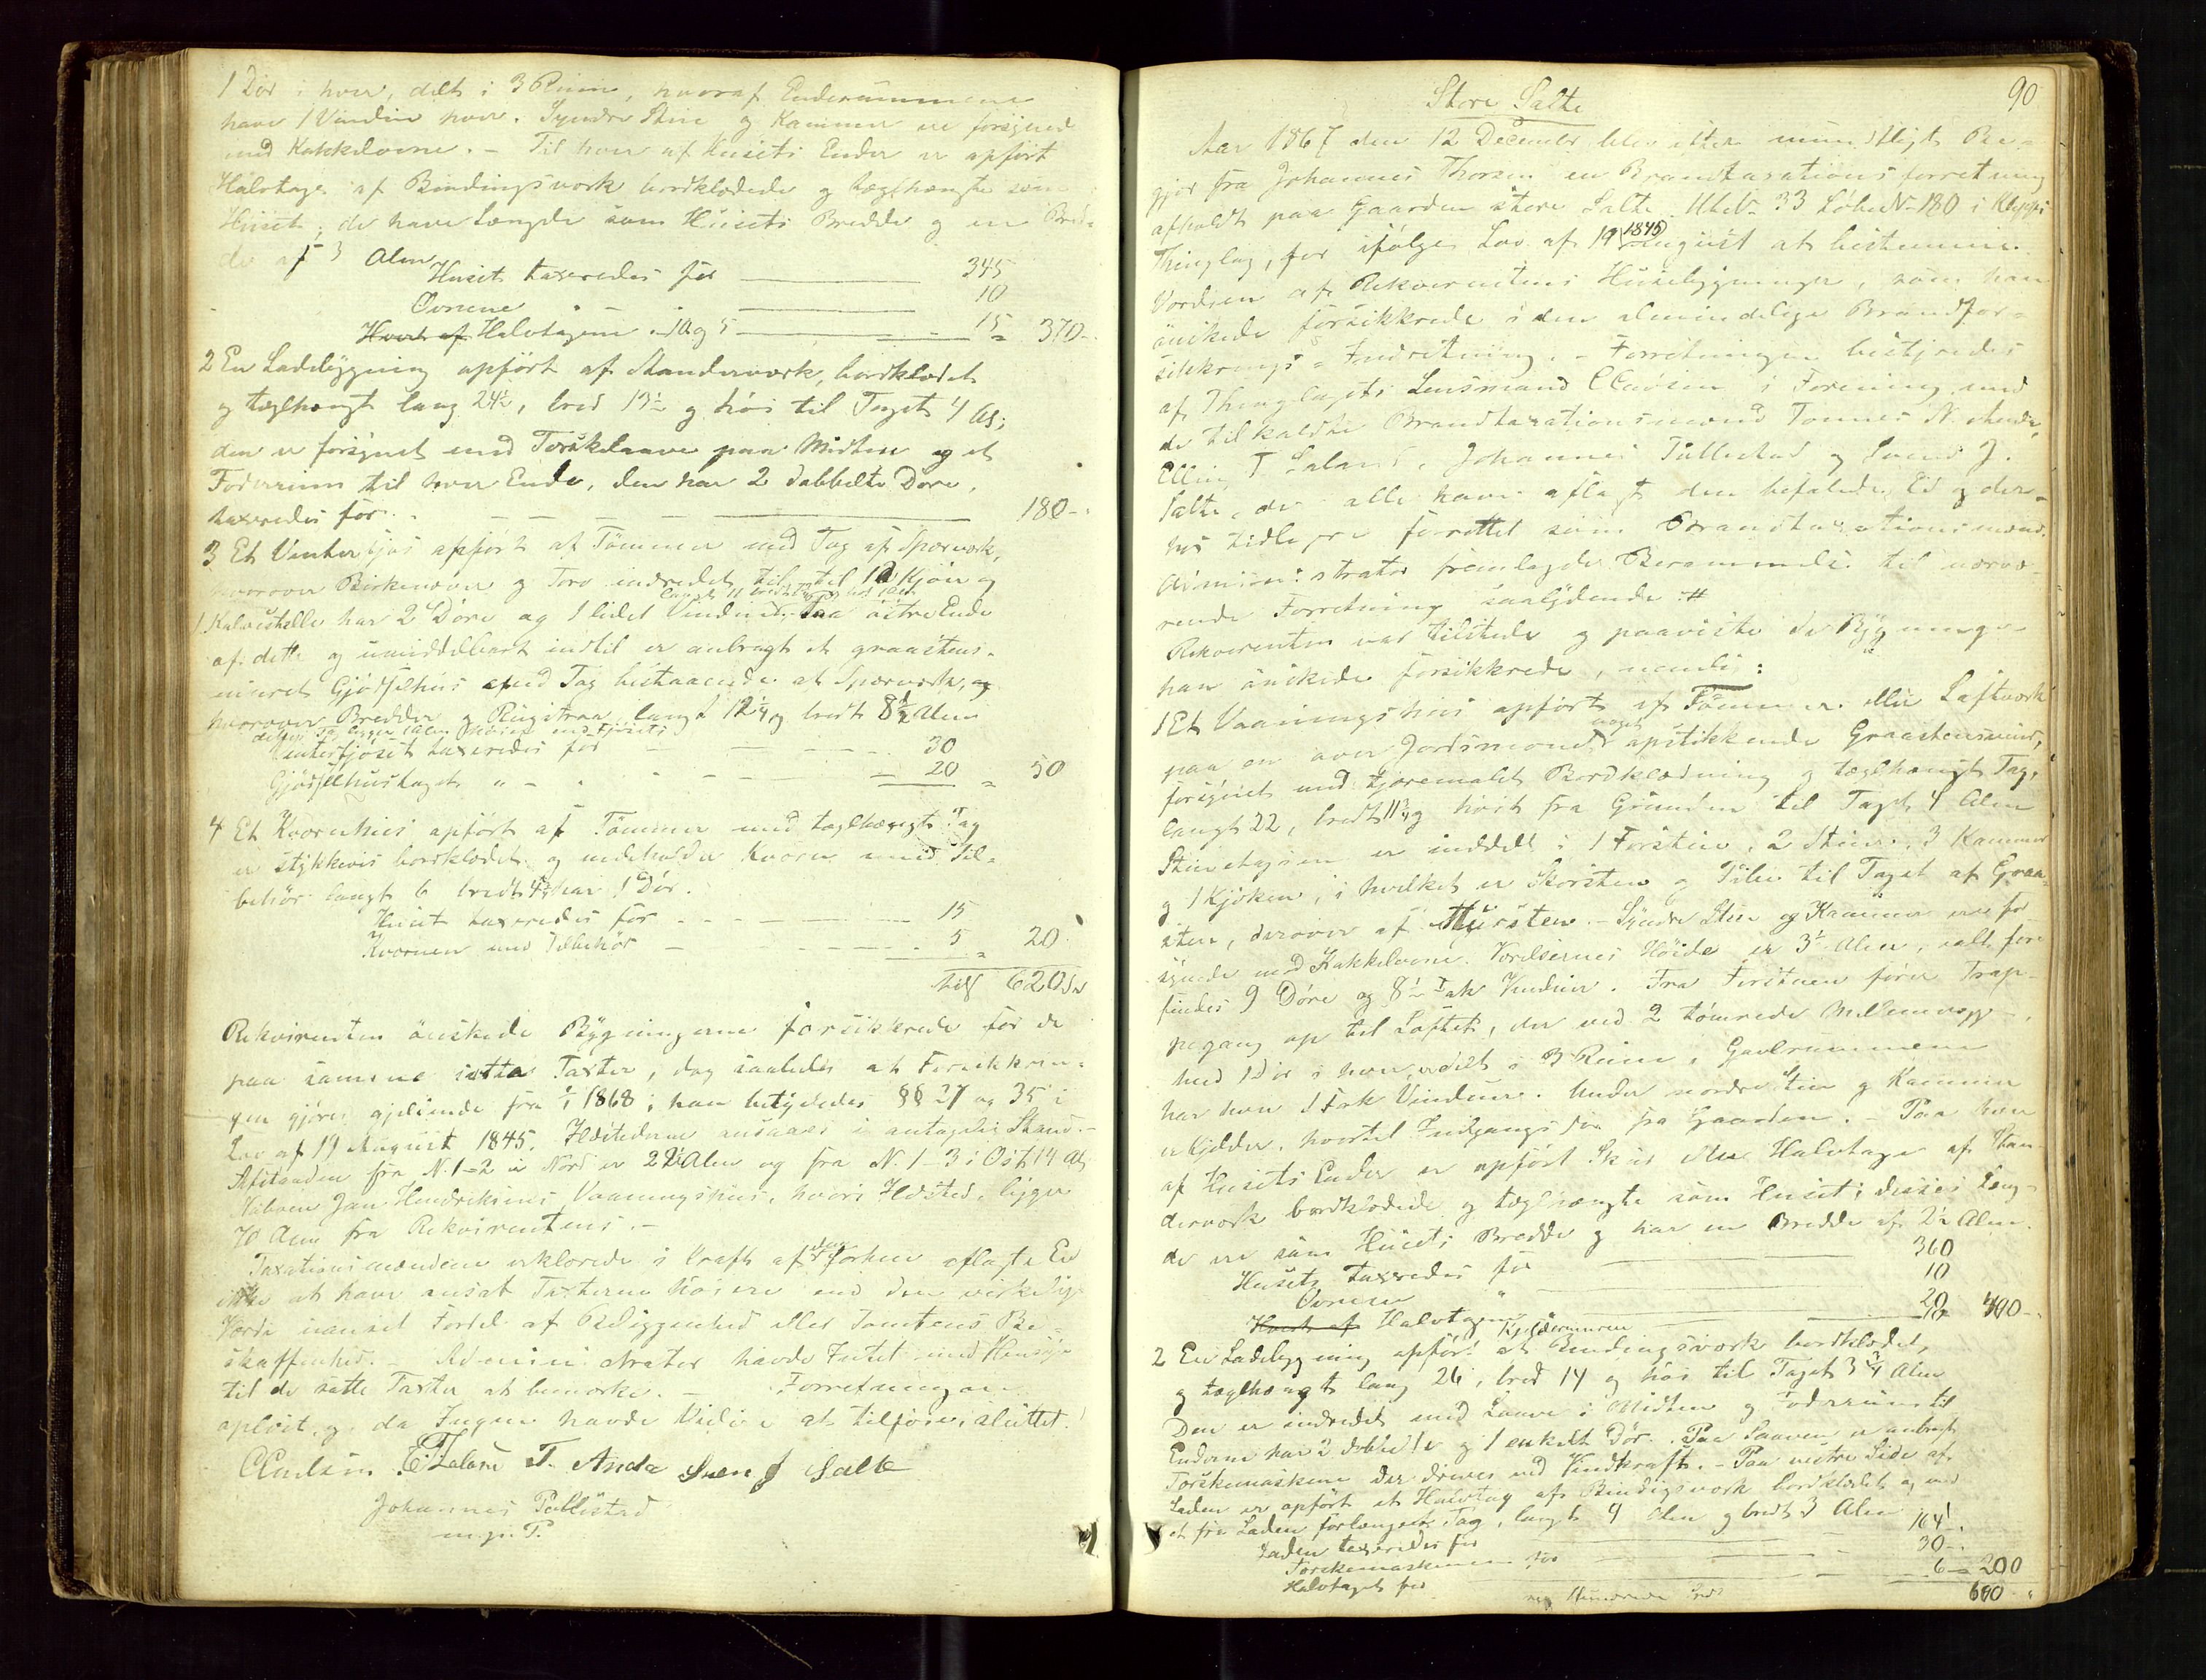 1 Dör i hver, delt i 3 Rum, hvoraf Enderummene
have 1 Vindue hver. Syndre Stue og Kammer ere forsynede
med Kakkelovne. – Til hver af Husets Ender er opfört
Halvtage af Bindingsverk bordklædede og tæglhængte som
Huset; de have Længde som Husets Bredde og en Bred-
de af 3 Alen
Huset taxeredes for 345
Ovnene " 10
Hvert af Halvtagene 10 og 5 15 = 370 -
2 En Ladebygning opfört af Standerværk, bordklædt
og tæglhængt lang 24½, bred 13½ og höi til Taget 4 Al;
den er forsynet med Torskelaave paa Midten og et
Foderrum til hver Ende, den har 2 dobbelte Döre,
taxeredes for 180 -
3 Et Vinterfjös opfört af Tömmer med Tag af Sperværk,
hvorover Birkenæver og Torv indredet til 12 Kjör og
1 Kalvestelle har 2 Döre og 1 lidet Vindue. Paa östre Ende
af dette og umiddelbart indtil er anbragt et graasteens-
muret Gjödselhus med Tag bestaaende af Sperværk, og
hvorover Bredder og Rugstraa langt 12¼ og bredt 8½ Alen
dettes Tag ligger 1 Alen höiere end Fjösets
Vinterfjöset taxeredes for 30
Gjödselhustaget " 20 = 50
4 Et Kvernhus opfört af Tömmer med tæglhængt Tag
er stykkevis bordklædet og indeholder Kvern med Til-
behör langt 6 bredt 4¾ har 1 Dör.
Huset taxeredes for 15
Kvernen med Tilbehör 5 = 20
tils 620 Sp
Rekvirenten önskede Bygningerne forsikkrede for de
paa samme satte Taxter, dog saaledes at Forsikkrin-
gen gjöres gjeldende fra 1/1 1868; han betydedes §§ 27 og 35 i
Lov af 19 August 1845. Ildstederne ansaaes i antagelig Stand. –
Afstanden fra N. 1–2 i Nord er 22½ Alen og fra N. 1–3 i Öst 14 Al;
Naboen Jan Hendriksens Vaaningshus, hvori Ildsted, ligger
70 Alen fra Rekvirentens. –
Taxationsmændene erklærede i Kraft af den forhen aflagte Ed
ikke at have ansat Taxterne höiere end den virkelige
Værdi uanset Fordel af Beliggenhed eller Tomtens Be-
skaffenhed. – Administrator havde Intet med Hensyn
til de satte Taxter at bemærke. – Forretningen
oplæst, og da Ingen havde Videre at tilföie, sluttet.
CClausen E T Laland T. Anda Sven J Salte
Johannes Tullestad
m. p. P.
90
Store Salte
Aar 1867 den 12 December blev efter mundtligt Be-
gjer fra Johannes Thorsen en Brandtaxationsforretning
afholdt paa Gaarden store Salte Mte N. 33 Löbe N. 180 i Klepps
Thinglag, for ifölge Lov af 19 August 1845 at bestemme
Værdien af Rekvirentens Husebygninger, som han
önskede forsikkrede i den almindelige Brandfor-
sikkrings-Indretning. – Forretningen bestyredes
af Thinglagets Lensmand CClausen i Forening med
de tilkaldte Brandtaxationsmænd Tönnes N. Anda,
Elling T Laland, Johannes Tullestad og Svend J.
Salte, der alle have aflagt den befalede Ed og der-
hos tidligere forrettet som Brandtaxationsmænd.
Administrator fremlagde Berammelse til nærvæ-
rende Forretning saalydende #
Rekvirenten var tilstede og paaviste de Bygninger
han önskede forsikkrede, nemlig:
1 Et Vaaningshus opfört af Tömmer eller Laftverk
paa en over Jordsmonet noget opstikkende Graasteensmur,
forsynet med tjæremalet Bordklædning og tæglhængt Tag,
langt 22, bredt 11¾ og höit fra Grunden til Taget 4 Alen
Stueetagen er inddelt i 1 Forstue, 2 Stuer, 3 Kammer
og 1 Kjöken, i hvilket er Skorsten og Pibe til Taget af Graa-
sten, derover af Mursten. – Syndre Stue og Kammer ere for-
synede med Kakkelovne. Værelsernes Höide er 3½ Alen, ialt fore-
findes 9 Döre og 8½ Fak Vinduer. Fra Forstuen förer Trap-
pegang op til Loftet, der ved 2 tömrede Mellemvægge
med 1 Dör i hver, er delt i 3 Rum, Gavlrummene
har hver 1 Fak Vinduer. Under nordre Stue og Kammer
er Kjelder, hvortil Indgangsdör fra Gaarden. Paa hver
af Husets Ender er opfört Skur eller Halvtage af Stan-
derverk bordklædede og tæglhængte som Huset; disses Læng-
de ere som Husets Bredde og har en Bredde af 2½ Alen.
Huset taxeredes for 360
Ovnene " 10
Hvert af Halvtagene 20
Kjeldermuren 400 -
2 En Ladebygning opfört af Bindingsværk bordklædet,
og tæglhængt lang 26, bred 14 og höi til Taget 3¾ Alen
Den er indredet med Laave i Midten og Foderrum til
Enderne har 2 dobbelte og 1 enkelt Dör. Paa Laaven er anbragt
Torskemaskine der drives ved Vindkraft. – Paa vestre Side af
Laden er opfört et Halvtag af Bindingsværk bordklædet og med
et fra Laden forlænget Tag, langt 9 Alen og bredt 3 Alen
Laden taxeredes for 164
Torskemaskinen for 30
Halvtaget for 6 = 200
600 "